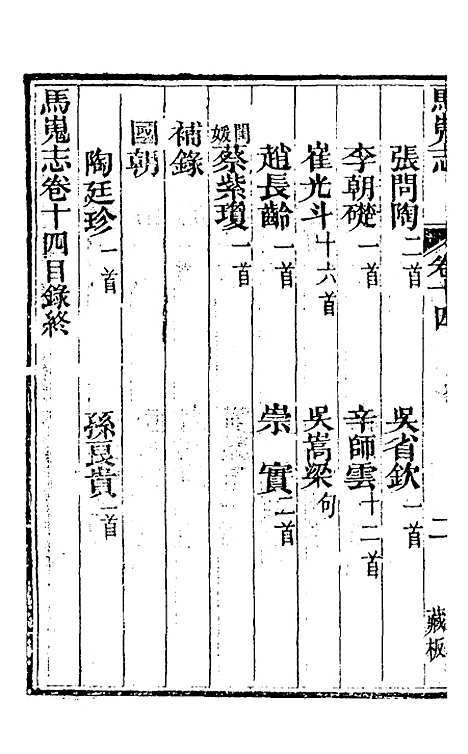 馬嵬志 卷十四 二 藏板
張問陶二首 吳省欽一首
李朝礎一首 辛師雲十二首
崔光斗十六首 吳嵩梁句
趙長齡一首 崇實二首
閨媛蔡紫瓊一首
補錄
國朝
陶廷珍一首 孫畏貴一首
馬嵬志卷十四目錄終